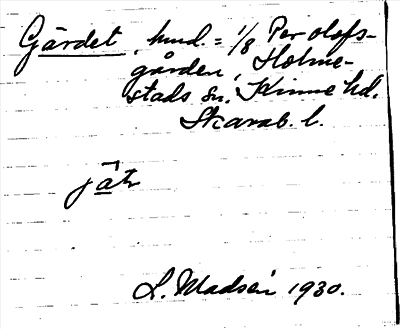 Gärdet, hmd. = 1/8 Per olofs-
gården, Holme-
stads sn. Kinne hd.
Skarab. l.
jäʈ
L. Madsén 1930.